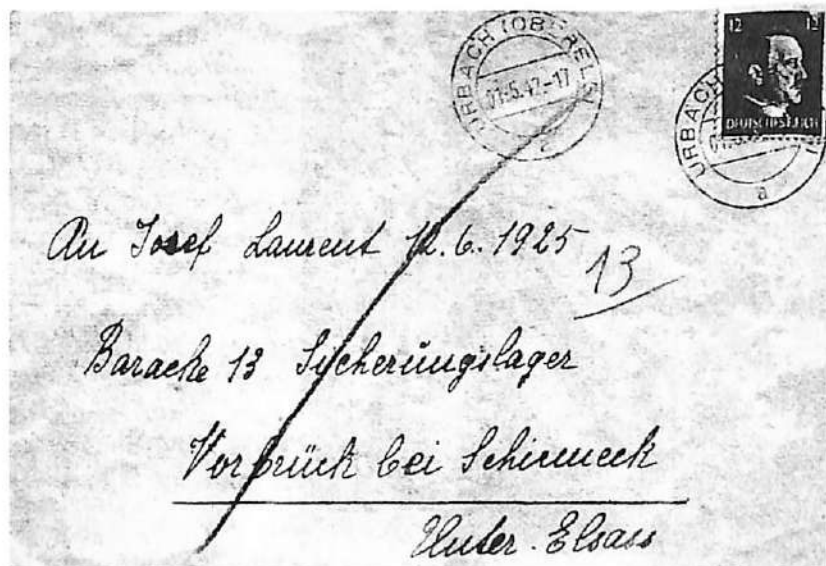 URBACH (OBERELS)
01.5.42-17
a
12 12
DEUTSCHES REICH
URBACH
a
An Josef Laurent 12.6.1925
13
Baracke 13 Sicherungslager
Vorbrück bei Schirmeck
Unter-Elsass